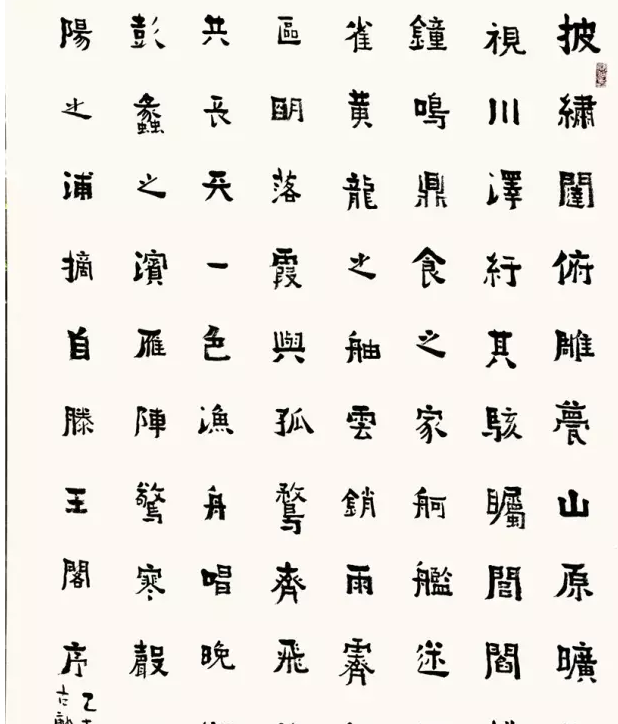 披繡闥俯雕甍山原曠
視川澤紆其駭矚閭閻
鐘鳴鼎食之家舸艦迷
雀黃龍之舳雲銷雨霽
區明落霞與孤鶩齊飛
共長天一色漁舟唱晚
彭蠡之濱雁陣驚寒聲
陽之浦摘自滕王閣序